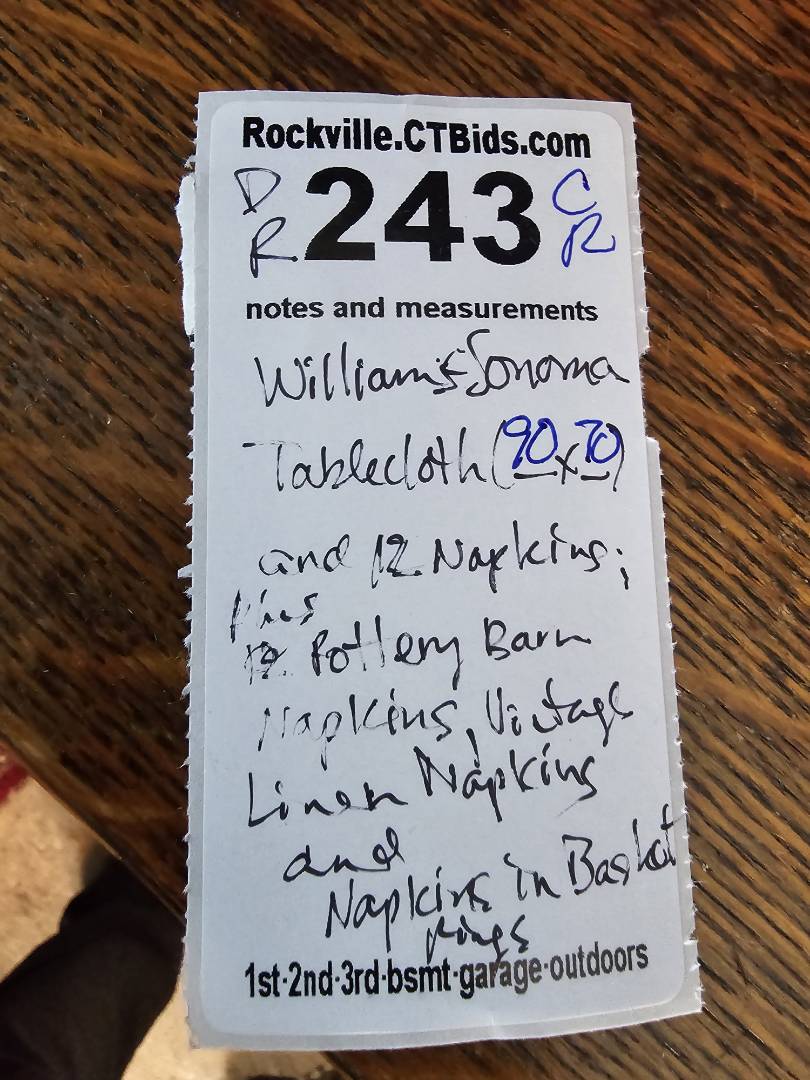 Rockville.CTBids.com
D R 243 C R
notes and measurements
Williams-Sonoma
Tablecloth (90x70)
and 12 Napkins;
plus
12 Pottery Barn
Napkins, Vintage
Linen Napkins
and
Napkins in Basket
rings
1st·2nd·3rd·bsmt·garage·outdoors